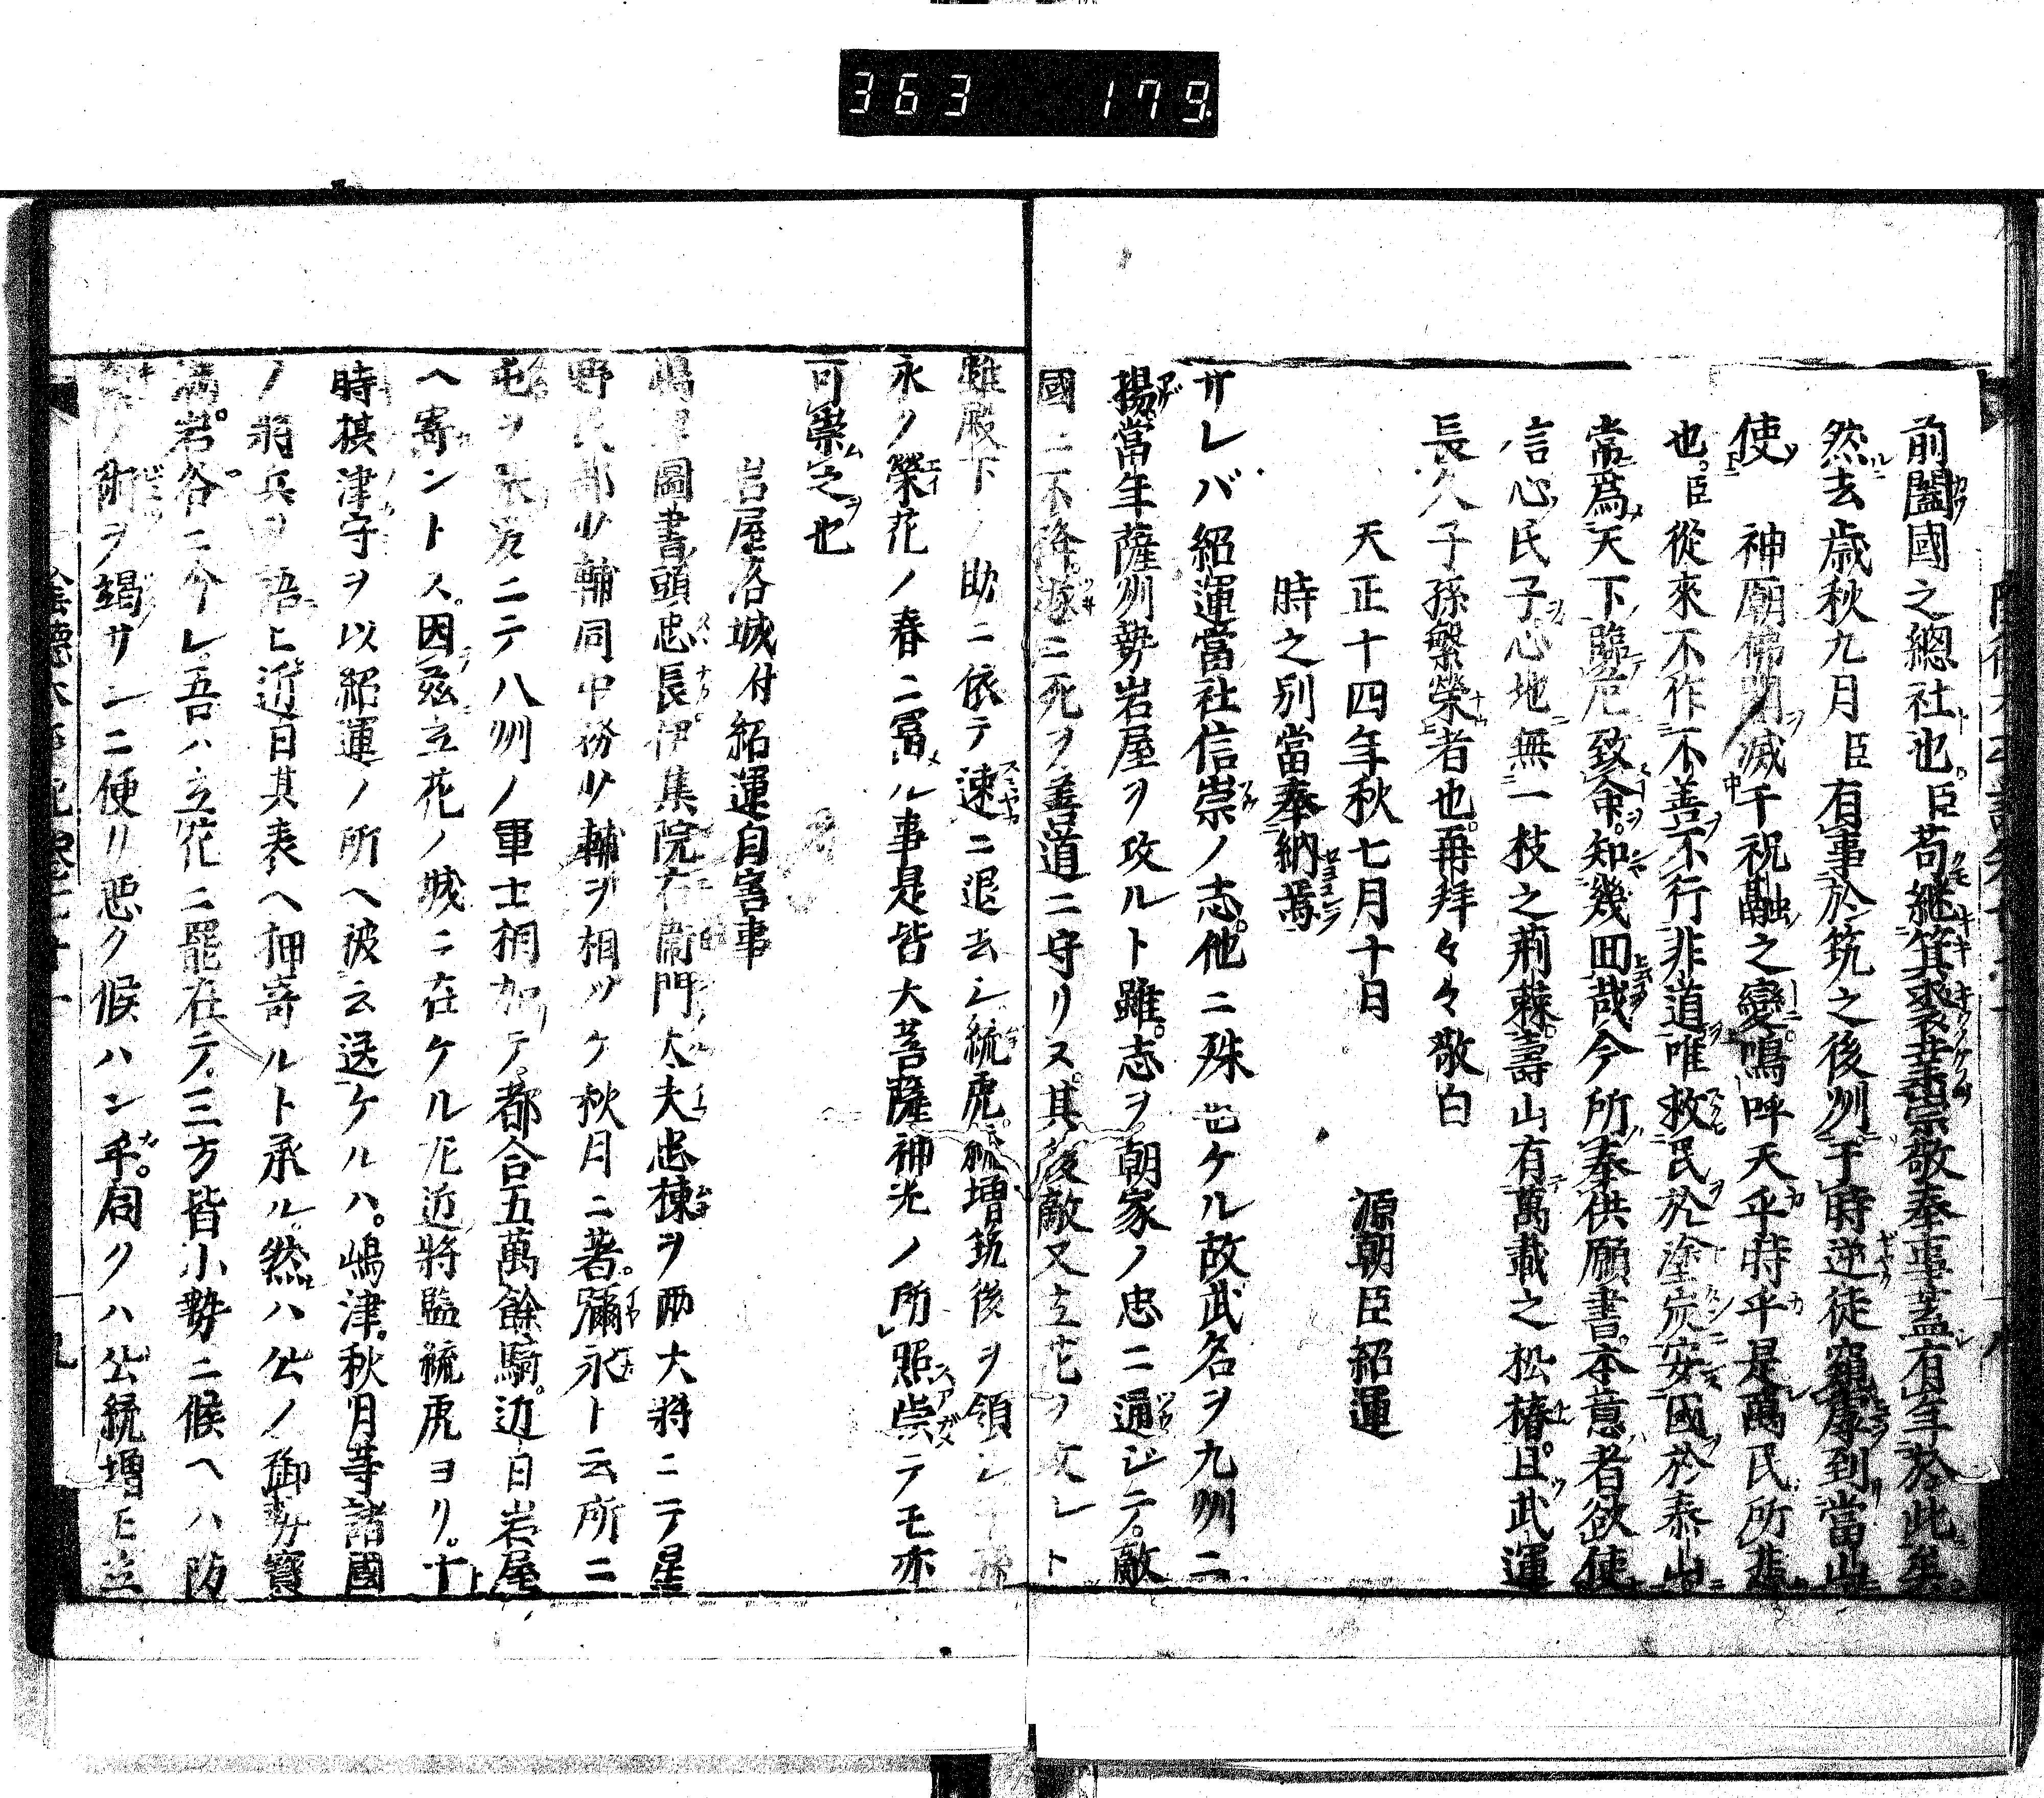 363 179
前闔國之總社也臣苟継箕裘業崇敬奉事蓋有年於此矣
然去歳秋九月臣有事於筑之後州于時逆徒窺 到當山
使 神廟佛閣滅干祝融之變嗚呼天乎時乎是萬民所悲
也臣從來不作不善不行非道唯救民於塗炭安國於泰山
常爲天下臨危致命知幾回哉今所奉供願書本意者欲使
信心氏子心地無一枝之荊棘壽山有萬載之松椿且武運
長久子孫繁榮者也再拜々々敬白
天正十四年秋七月十日 源朝臣紹運
時之別當奉納焉
サレバ紹運當社信崇ノ志他ニ殊也ケル故武名ヲ九州ニ
揚當年薩州勢岩屋ヲ攻ルト雖志ヲ朝家ノ忠ニ通シテ敵
國ニ不降遂ニ死ヲ善道ニ守リス其後敵又立花ヲ攻レト
雖殿下ノ助ニ依テ速ニ退去シ統虎統増筑後ヲ領シ子孫
永ノ榮花ノ春ニ冨ル事是皆大菩薩神光ノ所照崇テモ亦
可崇之也
岩屋洛城付紹運自害事
嶋津圖書頭忠長伊集院右衛門太夫忠棟ヲ兩大將ニテ星
野民部少輔同中務少輔ヲ相ソケ秋月ニ著彌永ト云所ニ
屯ヲ張爰ニテ八州ノ軍士相加テ都合五萬餘騎近日岩屋
ヘ寄ントス因茲立花ノ城ニ在ケル左近將監統虎ヨリ十
時摂津守ヲ以紹運ノ所ヘ被云送ケルハ嶋津秋月等諸國
ノ將兵ヲ語ヒ近日其表ヘ押寄ルト承ル然ハ公ノ御勢寶
満岩谷ニ分レ吾ハ立花ニ罷在テ三方皆小勢ニ候ヘハ防
ノ術ヲ竭サンニ便リ惡ク候ハン乎同クハ公統増モ立